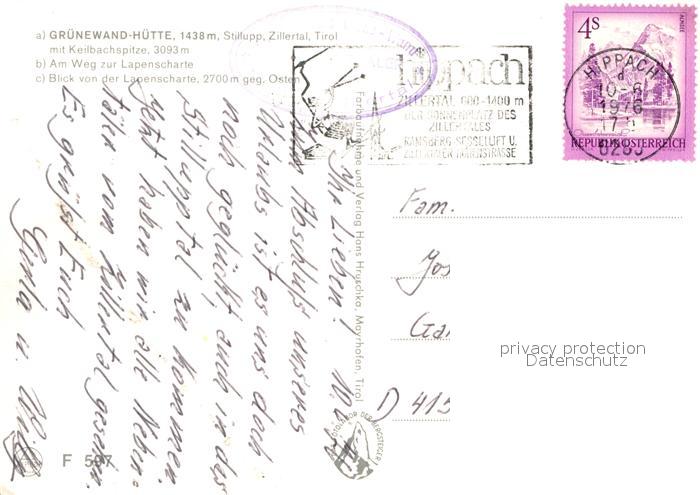 a) GRÜNEWAND-HÜTTE, 1438 m, Stillupp, Zillertal, Tirol
mit Keilbachspitze, 3093 m
b) Am Weg zur Lapenscharte
c) Blick von der Lapenscharte, 2700 m geg. Osten
hippach
ZILLERTAL 600-1400 m
DER SONNENPLATZ DES
ZILLERTALES
RAMSBERG-SESSELLIFT U.
ZILLERTALER HÖHENSTRASSE
4S
ALMSEE
REPUBLIK ÖSTERREICH
HIPPACH
d
10-6
1976
17
6283
Ihr Lieben! 10.
Zum Abschluß unseres
Urlaubs ist es uns doch
noch geglückt, auch in das
Stilluptal zu kommen.
Jetzt haben wir alle Neben-
täler vom Zillertal gesehen.
Es grüßt Euch
u.
Farbaufnahme und Verlag Hans Hruschka, Mayrhofen, Tirol
Fam.
Jos
Ga
D 415
privacy protection
Datenschutz
DER BERGSTEIGER
F 597